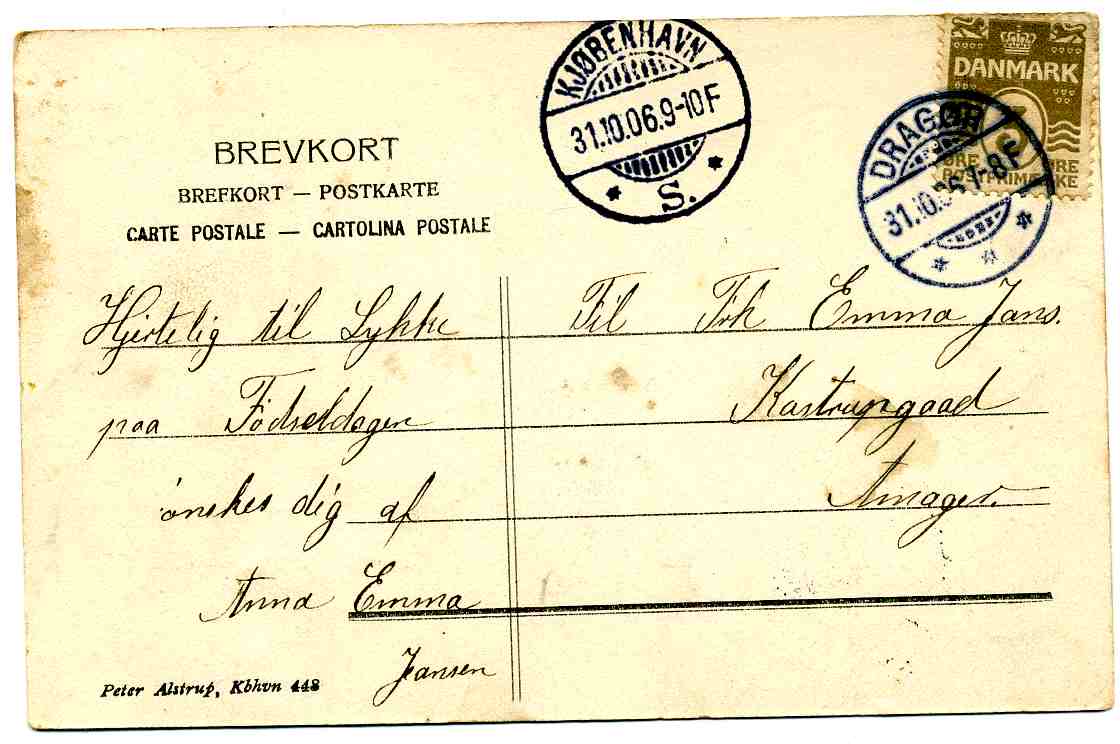 BREVKORT
BREFKORT — POSTKARTE
CARTE POSTALE — CARTOLINA POSTALE
KJØBENHAVN
31.10.06.9-10F
S.
DANMARK
DRAGØR
31.10.06 7-8F
ØRE ØRE
POSTFRIMÆRKE
Hjertelig til Lykke
paa Fødseldagen
ønskes dig af
Anna Emma
Jansen
Til Frk Emma Jans.
Kastrupgaad
Amager.
Peter Alstrup, Kbhvn 448